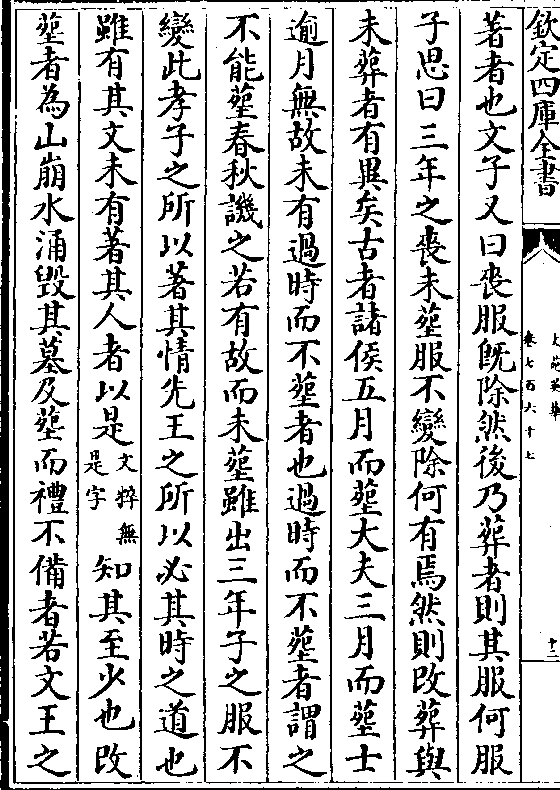 欽定四庫全書
文苑英華
卷七百六十七
十二
著者也文子又曰喪服既除然後乃葬者則其服何服
子思曰三年之喪未塟服不變除何有焉然則改葬與
未葬者有異矣古者諸侯五月而塟大夫三月而塟士
逾月無故未有過時而不塟者也過時而不塟者謂之
不能塟春秋譏之若有故而未塟雖出三年子之服不
變此孝子之所以著其情先王之所以必其時之道也
雖有其文未有著其人者以是文粹無是字知其至少也改
塟者為山崩水涌毀其墓及塟而禮不備者若文王之